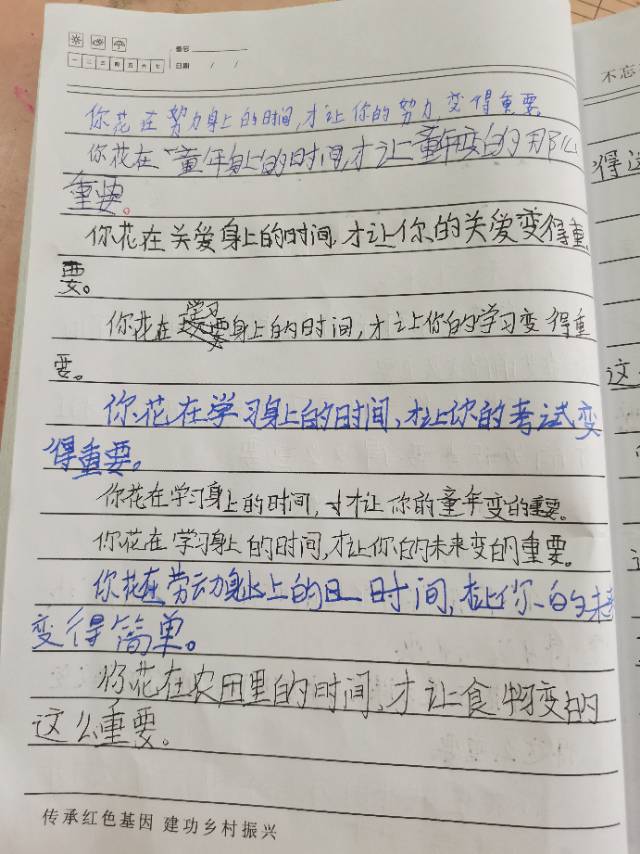 一 二 三 四 五 六 七
番名
日期 / /
不忘
你花在努力身上的时间,才让你的努力,变得重要
你花在"童年身上"的时间,才让童年变的那么
得这
重要。
你花在关爱身上的时间,才让你的关爱变得重
要。
学习
你花在身上的时间,才让你的学习变得重
要。
这
你花在学习身上的时间,才让你的考试变
得重要。
你花在学习身上的时间,才让你的童年变的重要。
你花在学习身上的时间,才让你的未来变的重要。
你花在劳动身上的时间,才让你的未来
变得简单。
你花在农田里的时间,才让食物变的
这么重要。
传承红色基因 建功乡村振兴